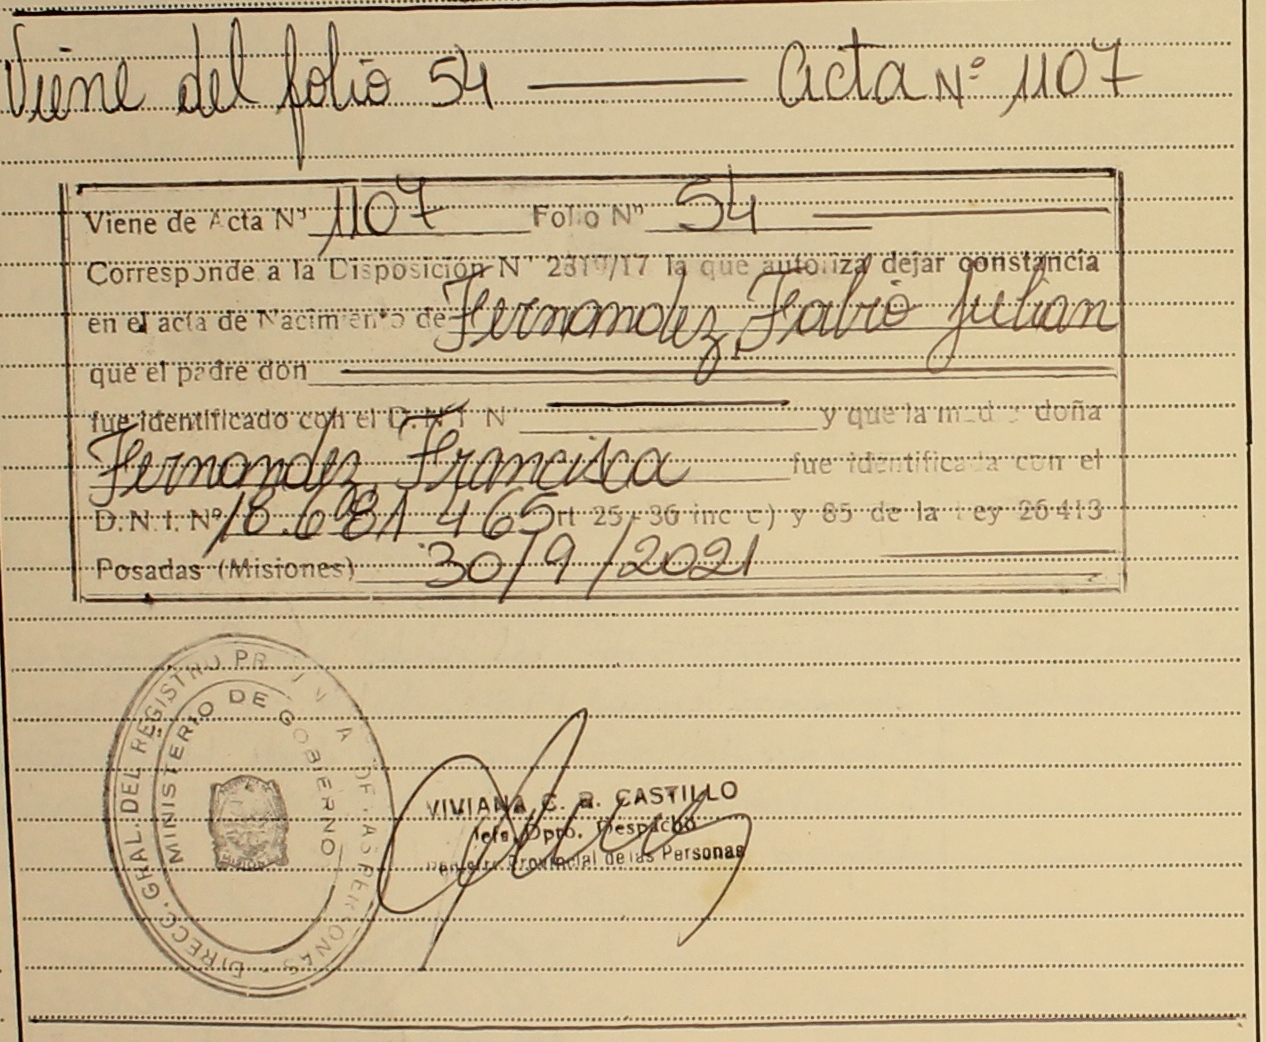 Viene del folio 54 —— Acta Nº 1107
Viene de Acta Nº 1107 Folio Nº 54 ——
Corresponde a la Disposición Nº 2319/17 la que autoriza dejar constancia
en el acta de Nacimiento de Fernandez, Fabio Julian
que el padre don ——
fue identificado con el D.N.I. Nº —— y que la madre doña
Fernandez, Francisca fue identificada con el
D.N.I. Nº 18.681 465 rt 25 - 36 inc c) y 85 de la Ley 26413
Posadas (Misiones) 30/9/2021 ——
DIRECC. GRAL. DEL REGISTRO PROVINCIAL DE LAS PERSONAS
MINISTERIO DE GOBIERNO
VIVIANA C. R. CASTILLO
Jefa Dpto. Despacho
Registro Provincial de las Personas